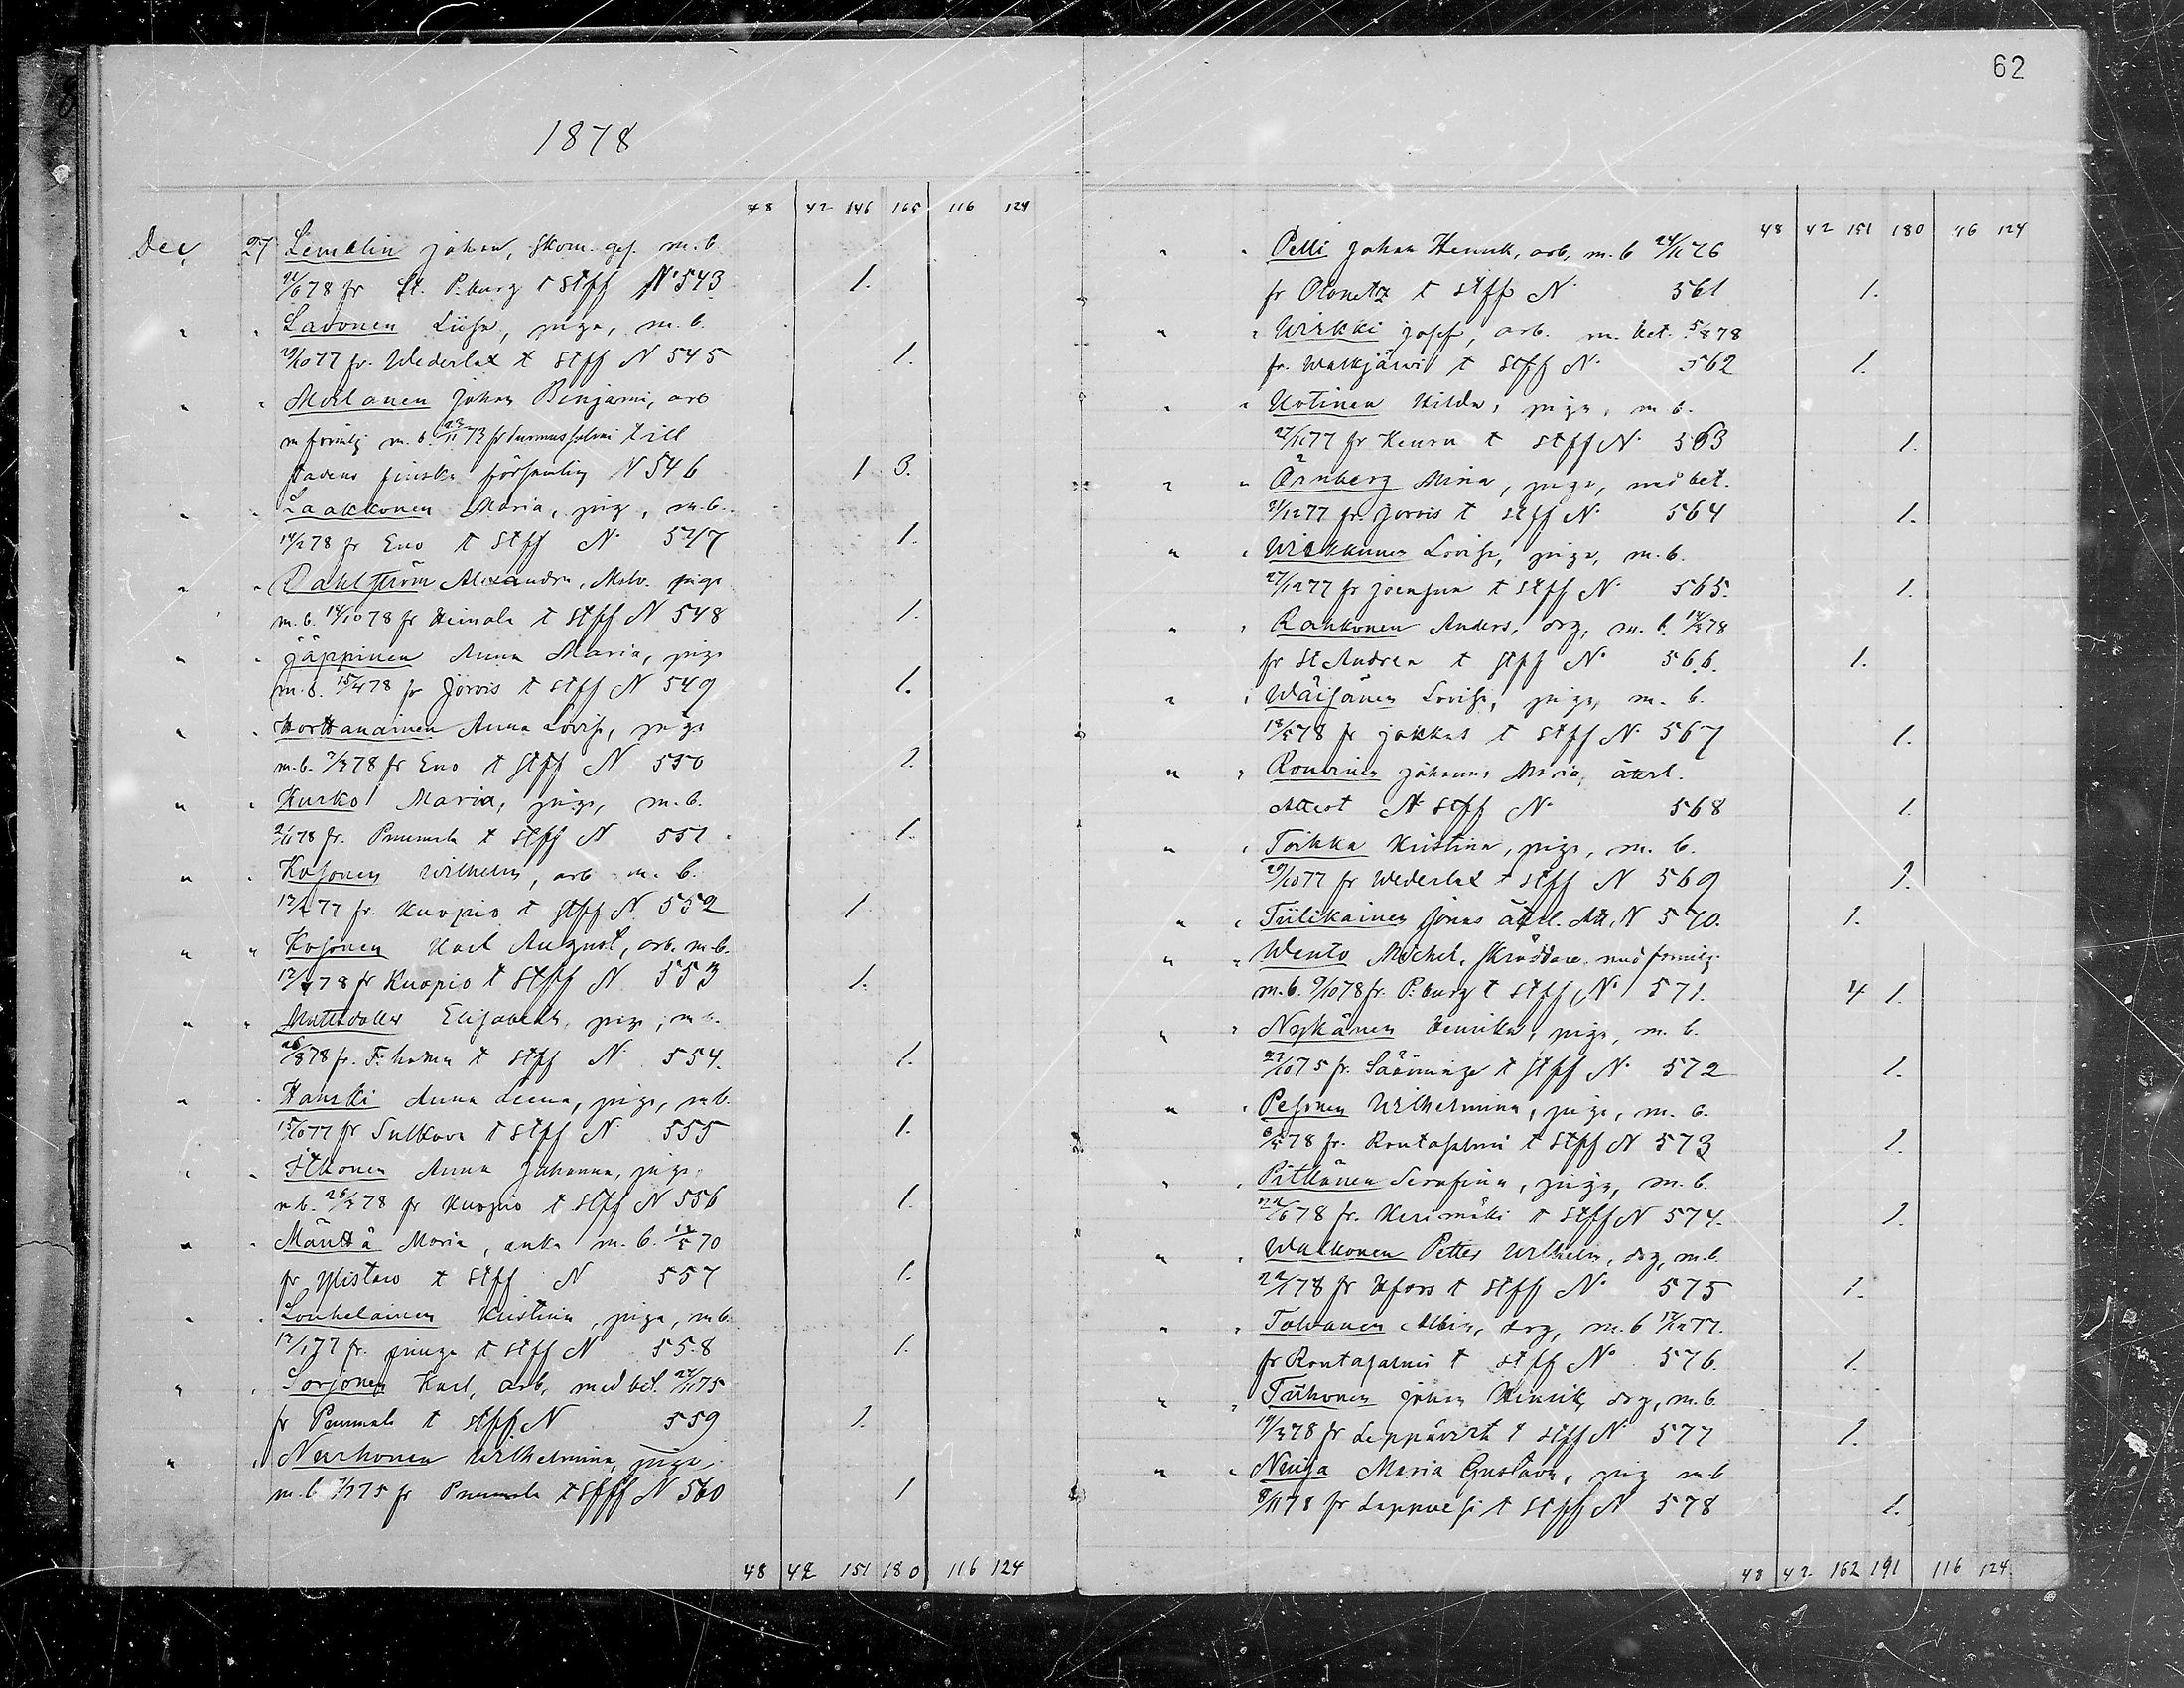 62
1878
48 42 146 165 116 124
Dec. 27 Lemelin Johan, skom. ges. m. b.
21/6 78 fr St. P.burg t Stff N° 543 1.
" " Lavonen Liisa, piga, m. b.
29/10 77 fr. Wederlax t Stff N 545 1.
" " Moilanen Johan Benjami, arb
m familj m. b. 23/11 73 fr Suomussalmi till
stadens finska församling N 546 1 3.
" " Laakkonen Maria, piga, m. b.
14/2 78 fr Eno t Stff N 547 1.
" " Dahlström Alexandra, piga
m. b. 14/10 78 fr Heinola t Stff N 548 1.
" " Jäppinen Anna Maria, piga
m. b. 15/4 78 fr Jorois t Stff N 549 1.
" " Korttanainen Anna Lovisa, piga
m. b. 7/3 78 fr Eno t Stff N 550 1.
" " Kurko Maria, piga, m. b.
2/1 78 fr. Puumala t Stff N 551 1.
" " Kosonen Wilhelm, arb m. b.
12/2 77 fr. Kuopio t Stff N 552 1.
" " Kosonen Karl August, arb. m. b.
12/4 78 fr Kuopio t Stff N 553 1.
" " Elisabeth, piga, m. b.
26/8 78 fr. F:hamn t Stff N 554. 1.
" " Hanski Anna Leena, piga, m b.
15/10 77 fr Sulkava t Stff N 555 1.
" " Itkonen Anna Johanna, piga
m b. 26/3 78 fr Kuopio t Stff N 556 1.
" " Mänttä Maria, enka m. b. 12/5 70
fr Ylistaro t Stff N 557 1.
" " Louhelainen Kristina, piga, m b.
12/1 77 fr. t Stff N 558 1.
" " Sorjonen Karl, arb, med bet. 24/11 75
fr Puumala t Stff N 559 1.
" " Nurhonen Wilhelmina, piga,
m. b 7/7 75 fr Puumala t Stff N 560 1
48 42 151 180 116 124
48 42 151 180 116 124
" " Pelli Johan Henrik, arb, m. b 24/11 76
fr Olonetz t Stff N 561 1.
" " Wirkki Josef, arb. m. bet. 5/8 78
fr. Walkjärvi t Stff N 562 1.
" " Uotinen Hilda, piga, m b.
27/11 77 fr Keuru t Stff N 563 1.
" " Örnberg Mina, piga, med bet.
21/12 77 fr. Jorois t Stff N 564 1.
" " Wirkkunen Lovisa, piga, m. b.
27/12 77 fr Joensuu t Stff N 565. 1.
" " Rankonen Anders, drg, m. b. 14/3 78
fr St Andrea t Stff N° 566. 1.
" " Wäisänen Lovisa, piga, m. b.
18/5 78 fr Jokkas t Stff N 567 1.
" " Rouvinen Johanna Maria, återl.
Attest N Stff N° 568 1.
" " Toikka Kristina, piga, m. b.
29/10 77 fr Wederlax t Stff N 569 1.
" " Tiilikainen Jonas återl. Att, N 570. 1.
" " Wento Mickel, skräddare med familj
m. b. 9/10 78 fr. P:burg t Stff N° 571. 4 1.
" " Nykänen Henrika, piga, m. b.
27/10 75 fr. Sääminge t Stff N 572 1.
" " Pesonen Wilhelmina, piga, m. b.
6/5 78 fr. Rantasalmi t Stff N 573 1.
" " Pitkänen Serafina, piga, m. b.
22/6 78 fr. Kerimäki t Stff N 574. 1.
" " Walkonen Petter Wilhelm, drg, m. b.
22/1 78 fr Hfors t Stff N° 575 1.
" " Tolvanen Albin, drg, m. b 17/12 77.
fr Rantasalmi t Stff N° 576. 1.
" " Tiihonen Johan Henrik, drg, m. b.
19/3 78 fr Leppävirta t Stff N 577 1.
" " Maria Gustava, pig m b
8/11 78 fr Lappvesi t Stff N 578 1.
48 42 162 191 116 124